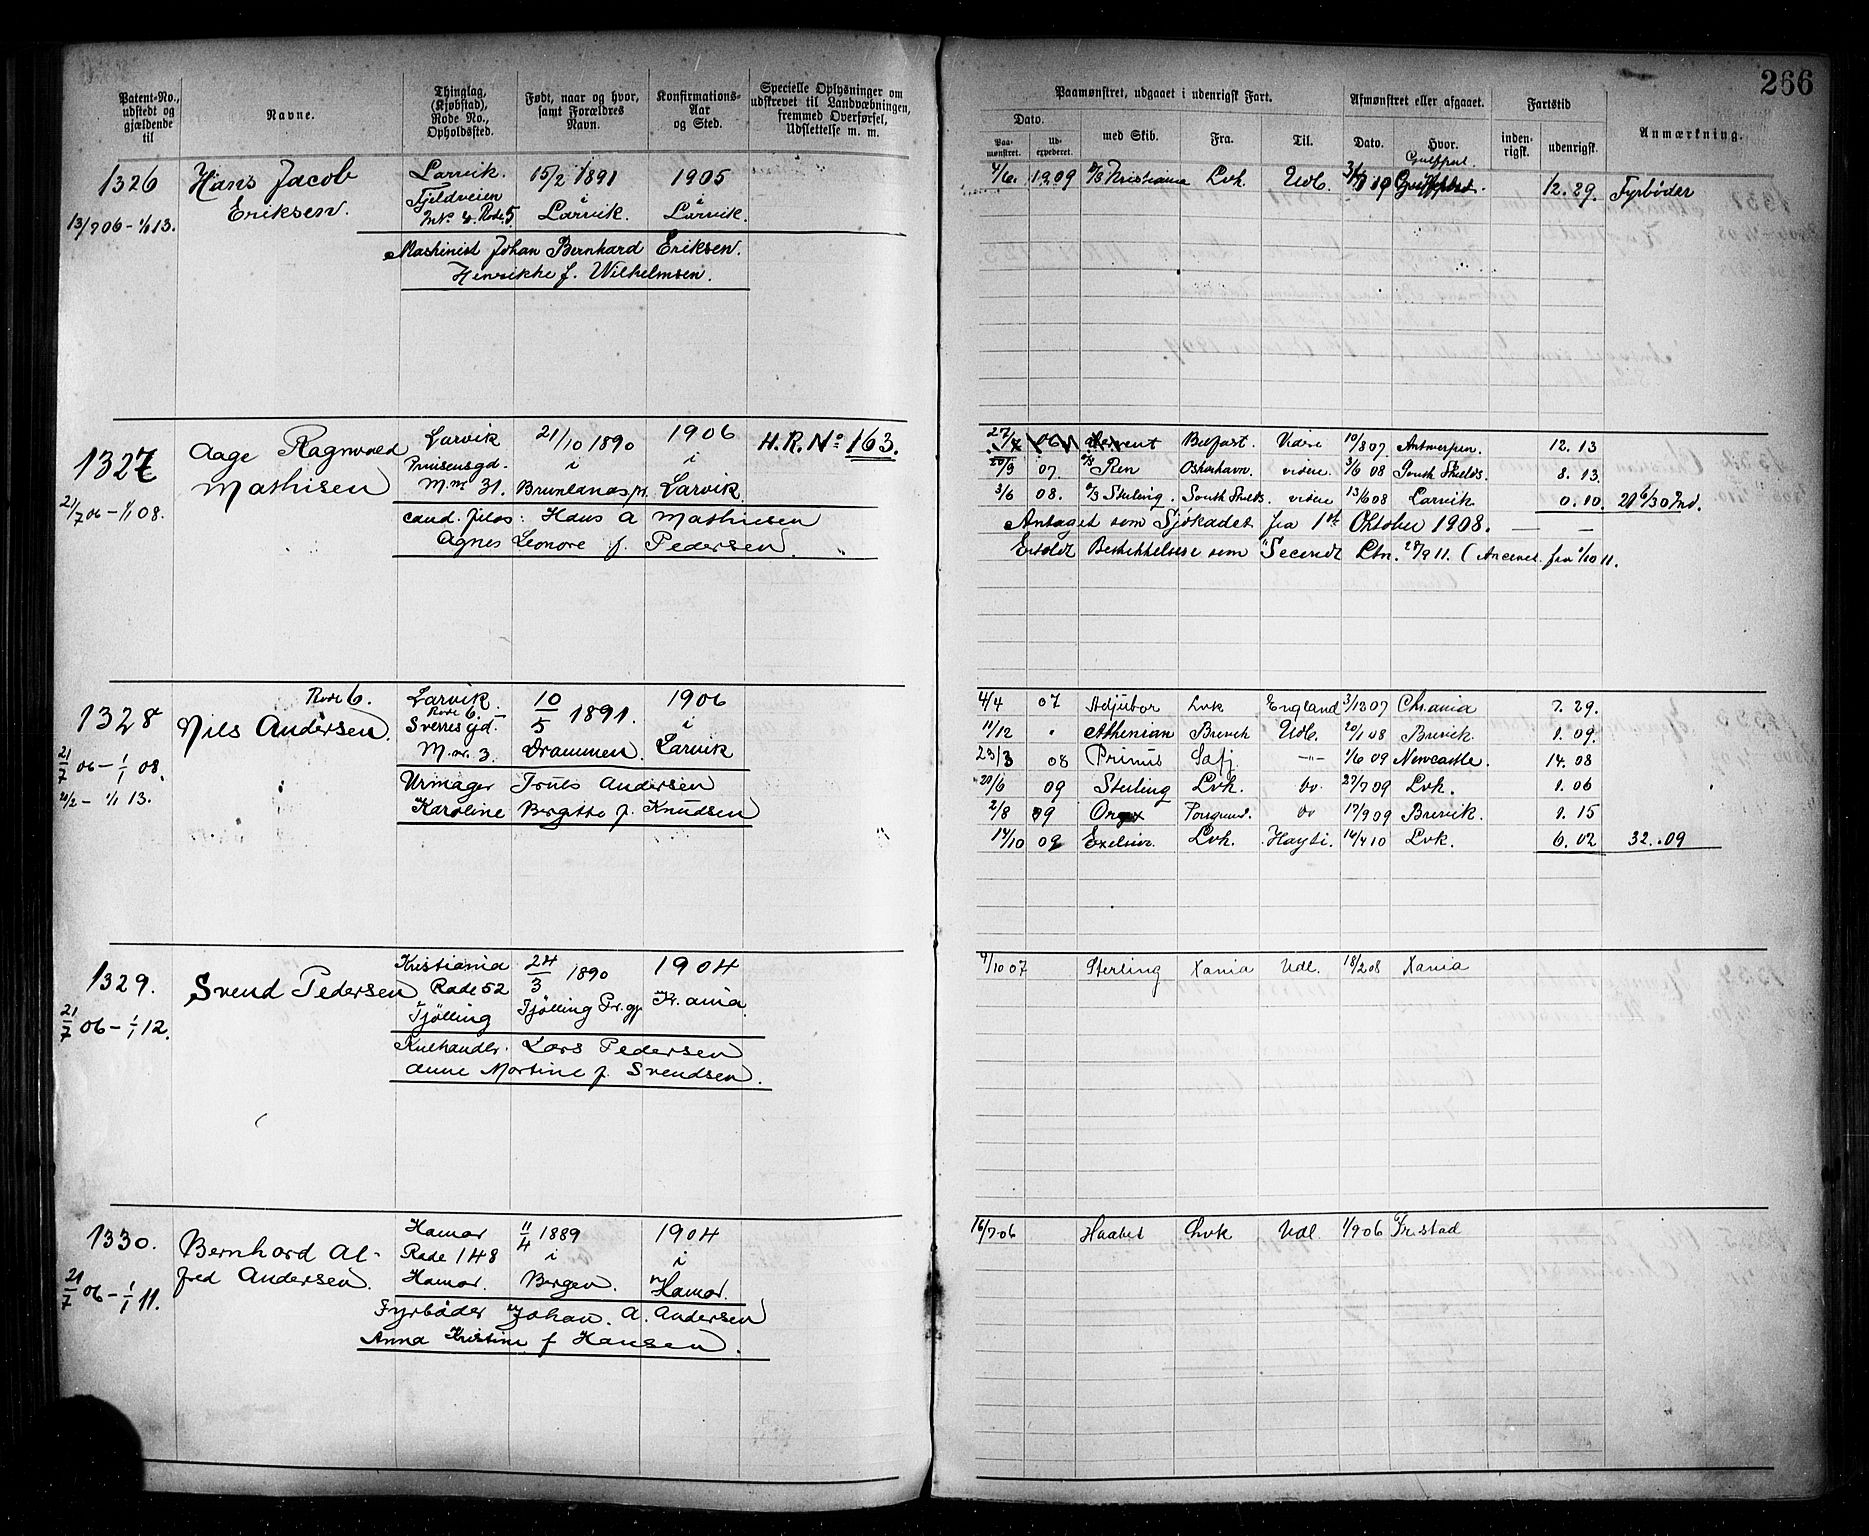 266
Patent-No., udstedt og gjældende til
Navne.
Thinglag, (Kjøbstad), Rode No., Opholdssted.
Født, naar og hvor, samt Forældres Navn.
Konfirmations-Aar og Sted.
Specielle Oplysninger om udskrevet til Landvæbningen, fremmed Overførsel, Udslettelse m. m.
Paamønstret, udgaaet i udenrigsk Fart.
Dato.
Paa-mønstret.
Ud-expederet.
med Skib.
Fra.
Til.
Afmønstret eller afgaaet.
Dato.
Hvor.
Fartstid
inden-rigsk.
udenrigsk.
Anmærkning.
1326 Hans Jacob Larvik. 15/2 1891 1905
Eriksen. Fjeldveien i i
13/7 06 - 1/1 13. Mk 4. Rode 5 Larvik. Larvik.
Maskinist Johan Bernhard Eriksen.
Henrikke f. Wilhelmsen.
4/6. 1909 D/S Kristiania Lvk. Udl. Gulfport. 12. 29. Fyrbøder
1327 Aage Ragnvald Larvik 21/10 1890 1906 H.R. No 163.
Mathisen Prinsensgd. i i
21/7 06 - 1/1 08. M.nr 31. Brunlanæs pr. Larvik.
cand. filos: Hans A Mathisen
Agnes Leonore f. Pedersen.
27/7 06 Belfast. Videre 10/8 07 Antwerpen. 12. 13
20/9 07. D/S Ren Oskarhavn. videre. 3/6 08 South Shields. 8. 13.
3/6 08. D/S Sterling. South Shields. videre 13/6 08 Larvik 0. 10.
Antaget som Sjökadet fra 1ste Oktober 1908.
Erholdt Beskikkelse som Secondt Ltn. 28/9 11. (Anciennet. fra 1/10 11.
1328 Nils Andersen. Rode 6. Larvik. 10/5 1891. 1906
Rode 6 i
Sverresgd.
21/7 06 - 1/1 08. M.nr. 3. Drammen. Larvik
20/2 - 1/1 13.
Urmager Truls Andersen
Karoline Bergitte f. Knudsen
4/4 07 Adjutor Lvk England 3/12 07 Ch.ania 7. 29.
11/12 " Athenian Brevik Udl. 20/1 08 Brevik. 1. 09.
23/3 08 Primus Safj. -"- 1/6 09 Newcastle. 14. 08
20/6 09 Sterling Lvk. do. 27/7 09 Lvk. 1. 06
2/8 09 Porsgrund. do 17/9 09 Brevik. 1. 15
14/10 09 Exelsior. Lvk. Hayti. 14/4 10 Lvk. 6. 02 32. 09
1329. Svend Pedersen Kristiania 24/3 1890 1904
Rode 52
21/7 06 - 1/1 12. Tjölling Tjölling Pr.gj. Kr.ania.
Kulhandlr. Lars Pedersen
Anne Martine f. Svendsen.
4/10 07 Sterling Xania Udl. 18/2 08 Xania
1330. Bernhard Al- Hamar 11/4 1889 1904
fred Andersen. Rode 148 i i
21/7 06 - 1/1 11. Hamar. Bergen. Hamar.
Fyrbøder Johan. A. Andersen
Anna Kristine f Hansen.
16/7 06 Haabet Lvk Udl 1/9 06 Fr.stad